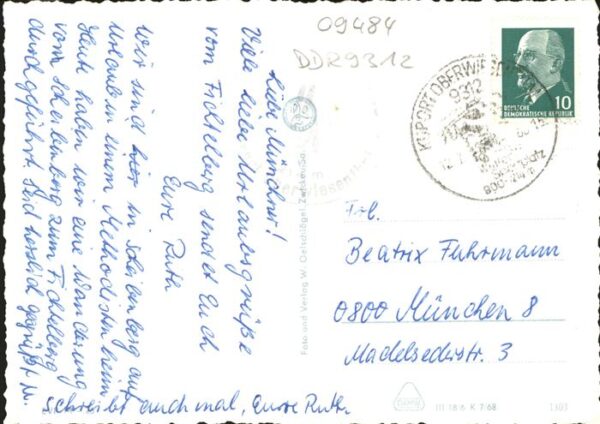 09484
DDR9312
Liebe Münchner!
Viele liebe Urlaubsgrüße
vom Fichtelberg sendet Euch
Eure Ruth
Wir sind hier in Scheibenberg auf
Urlaub in einem Methodistenheim
Heut haben wir eine Wanderung
vom Scheibenberg zum Fichtelberg
durchgeführt. Seid herzlich gegrüßt u.
schreibt auch mal, Eure Ruth
Foto und Verlag W. Oelschlägel, Zwickau
KURORT OBERWIESENTHAL
9312
DEUTSCHE
DEMOKRATISCHE REPUBLIK
10
900 m
Frl.
Beatrix Fuhrmann
0800 München 8
Madelsederstr. 3
III 18/6 K 7/68
1303